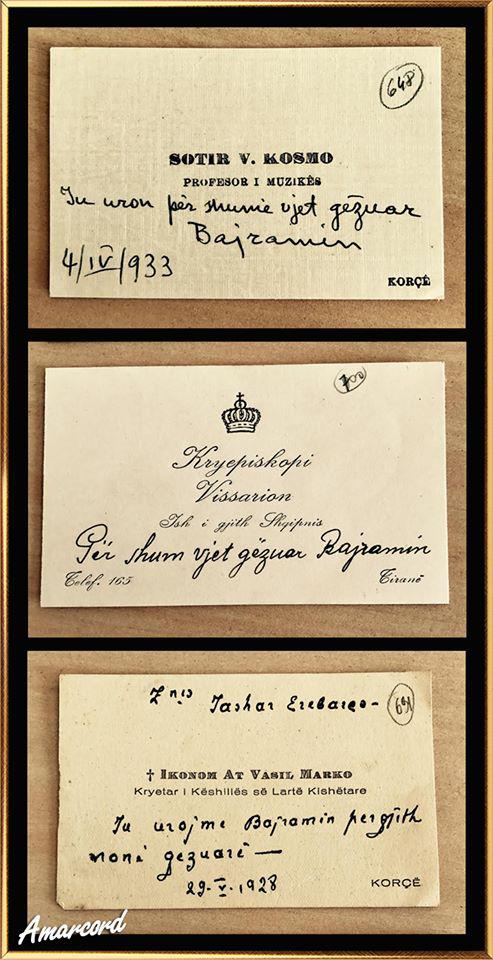 648
SOTIR V. KOSMO
PROFESOR I MUZIKËS
Ju uron për shumë vjet gëzuar
Bajramin
4/IV/933
KORÇË
700
Kryepiskopi
Vissarion
Ish i gjith Shqipnis
Për shum vjet gëzuar Bajramin
Telef. 165
Tiranë
Z nis Jashar Erebara
691
† IKONOM AT VASIL MARKO
Kryetar i Këshillës së Lartë Kishëtare
Ju urojme Bajramin pergjith
monë gezuarë —
29-V-1928
KORÇË
Amarcord